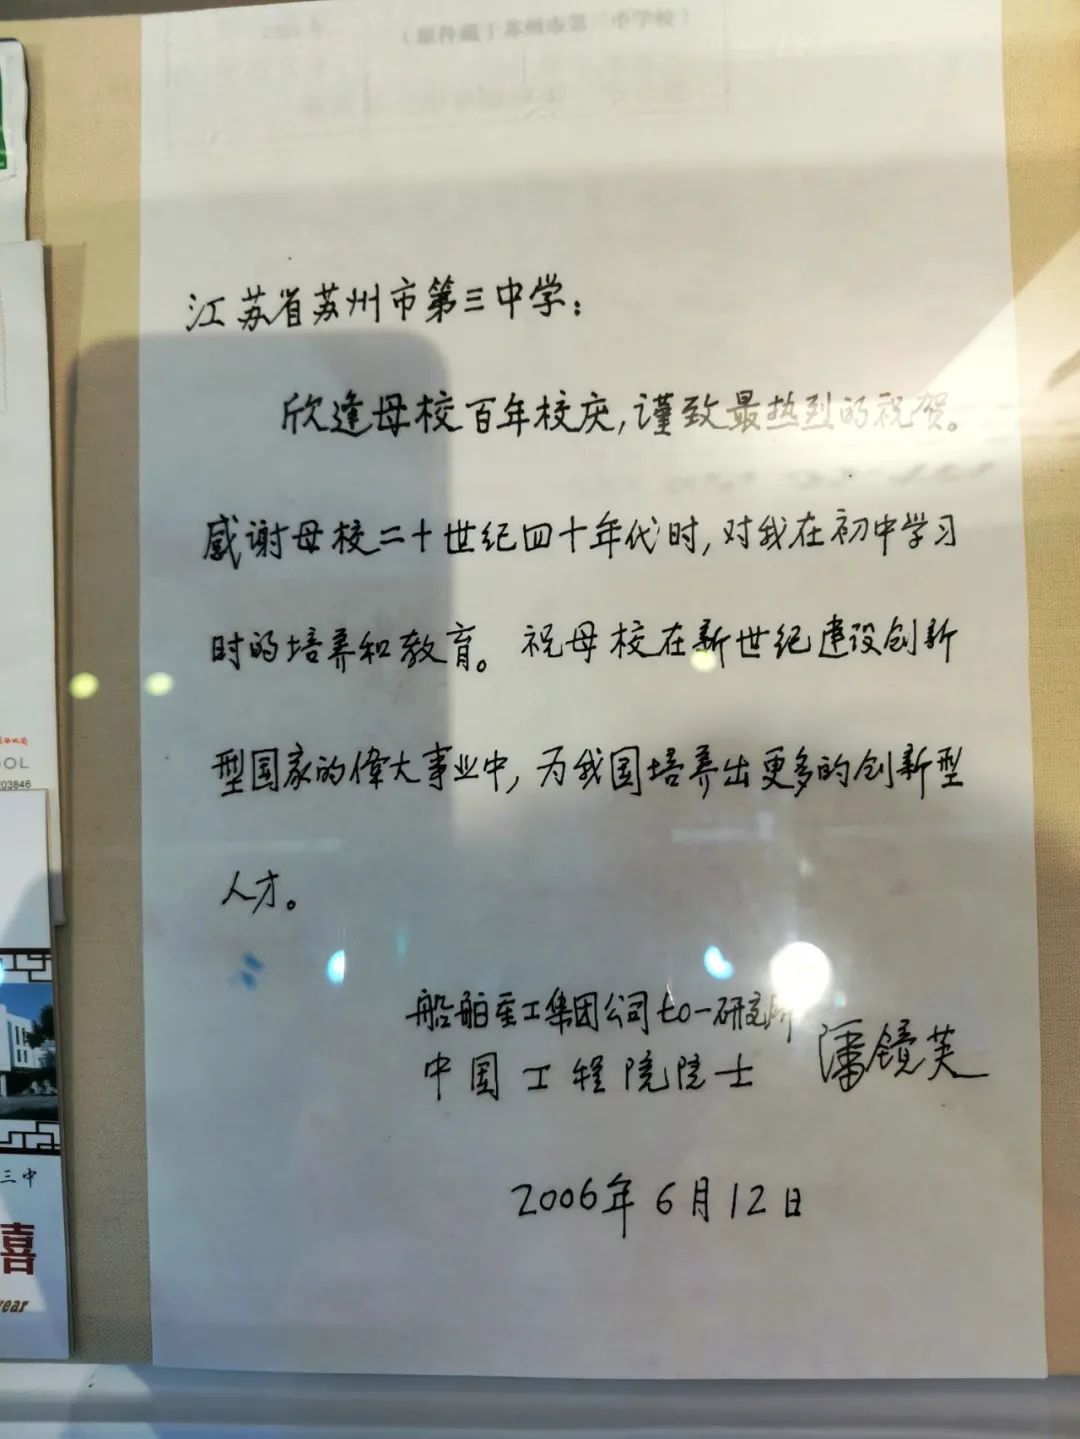 （原件藏于苏州市第三中学校）
江苏省苏州市第三中学：
欣逢母校百年校庆，谨致最热烈的祝贺。
感谢母校二十世纪四十年代时，对我在初中学习
时的培养和教育。祝母校在新世纪建设创新
型国家的偉大事业中，为我国培养出更多的创新型
人才。
船舶重工集团公司七〇一研究所
中国工程院院士 潘镜芙
2006年6月12日
OOL
203846
三中
喜
year